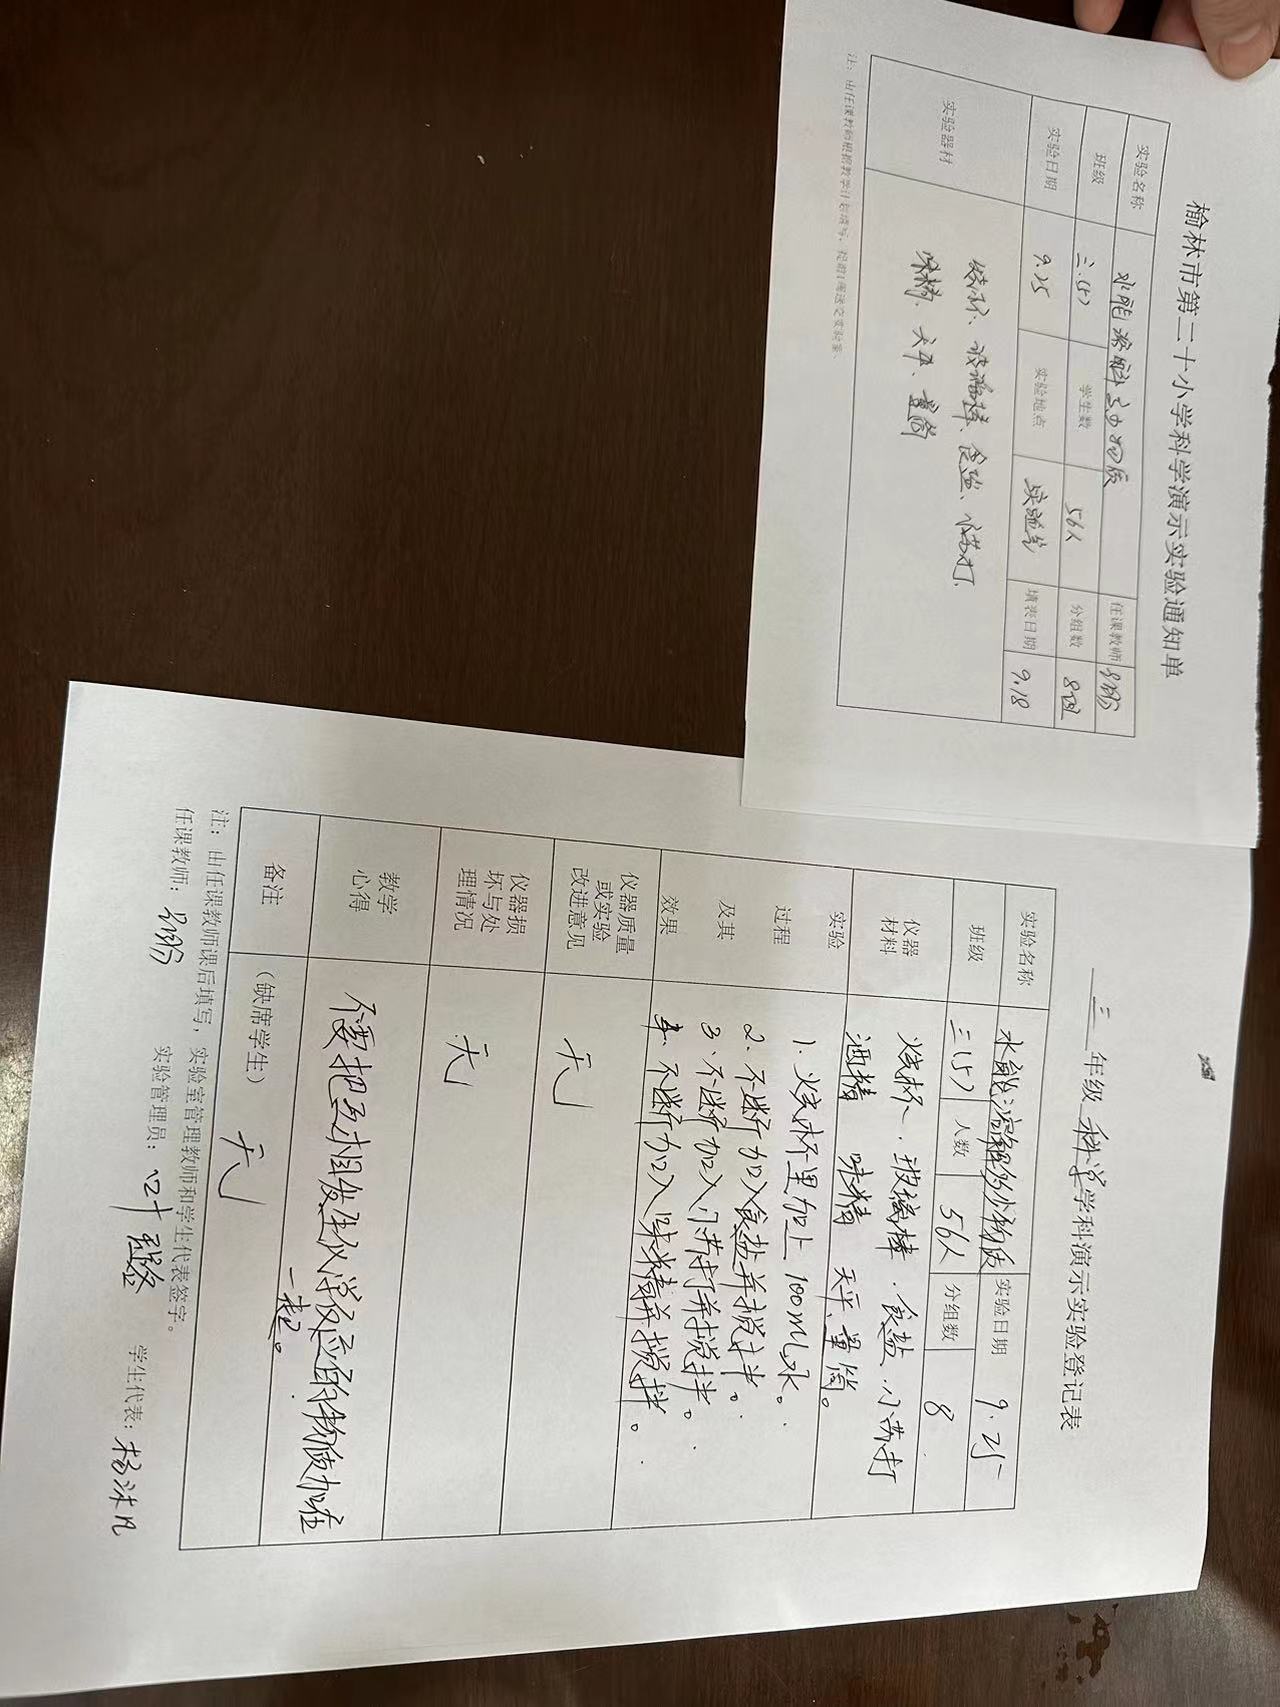 榆林市第二十小学科学演示实验通知单
实验名称 水能溶解多少物质 任课教师
班级 三(5) 学生数 56人 分组数 8组
实验日期 9.25 实验地点 实验室 填表日期 9.18
实验器材 烧杯、玻璃棒、食盐、小苏打、
味精、天平、量筒
注：由任课教师根据教学计划填写，提前1周送交实验室。
三 年级 科学 学科演示实验登记表
实验名称 水能溶解多少物质 实验日期 9.25
班级 三(5) 人数 56人 分组数 8
仪器材料 烧杯、玻璃棒、食盐、小苏打
酒精 味精 天平、量筒。
实验过程及其效果 1、烧杯里加上100mL水。
2、不断加入食盐并搅拌。
3、不断加入小苏打并搅拌。
4、不断加入味精并搅拌。
仪器质量或实验改进意见 无
仪器损坏与处理情况 无
教学心得 不要把互相发生化学反应的物质加在
一起。
备注 （缺席学生） 无
注：由任课教师课后填写，实验室管理教师和学生代表签字。
任课教师： 实验管理员： 学生代表：杨沐凡